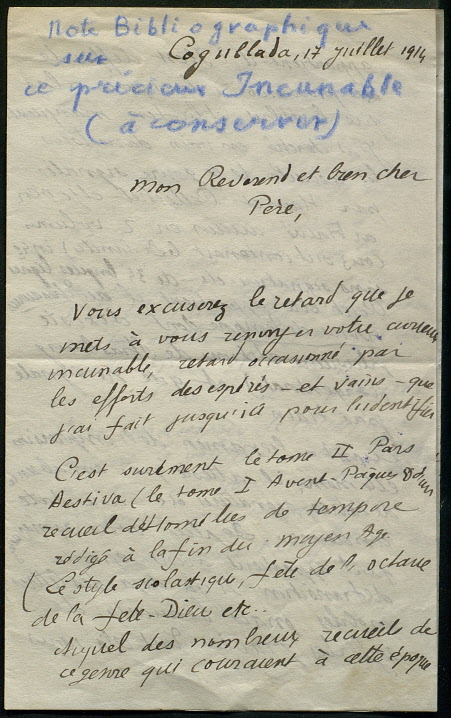 Note Bibliographique
sur
Cogullada, 17 juillet 1914
ce précieux Incunable
(à conserver)
Mon Reverend et bien cher
Père,
Vous excuserez le retard que je
mets à vous renvoyer votre curieux
incunable, retard occasionné par
les efforts desespérés - et vains - que
j'ai fait jusqu'ici pour l'identifier
C'est surement le tome II Pars
Aestiva (le tome I Avent-Pâques
recueil d'Homélies de tempore
rédigé à la fin du moyen age
(Le style scolastique, fête de l'octave
de la fête-Dieu etc..
auquel des nombreux recueils de
ce genre qui couraient à cette époque